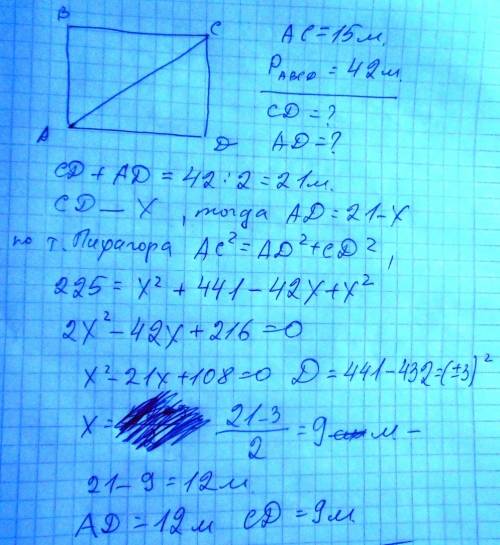 B
C
A
D
AC = 15 м.
P ABCD = 42 м.
CD = ?
AD = ?
CD + AD = 42 : 2 = 21 м.
CD — X , тогда AD = 21 - X
по т. Пифагора AC² = AD² + CD²,
225 = X² + 441 - 42X + X²
2X² - 42X + 216 = 0
X² - 21X + 108 = 0 D = 441 - 432 = (±3)²
X = (21 - 3)/2 = 9 м -
21 - 9 = 12 м.
AD = 12 м CD = 9 м.